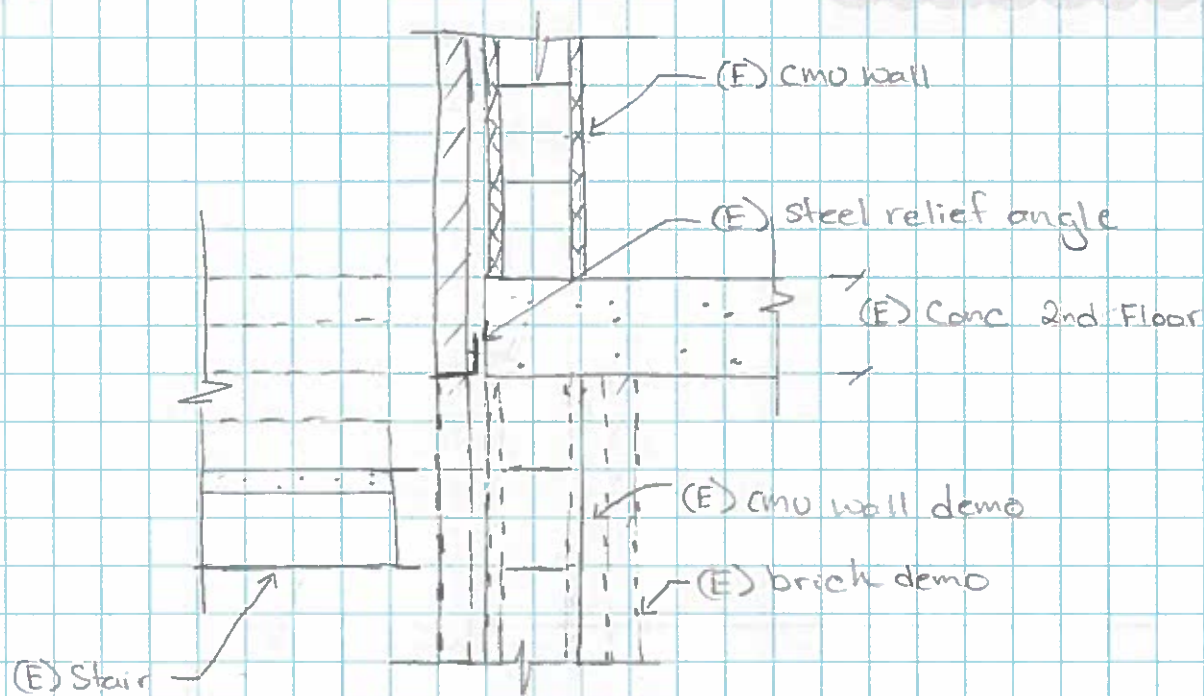 (E) CMU wall
(E) steel relief angle
(E) Conc 2nd Floor
(E) CMU wall demo
(E) brick demo
(E) Stair